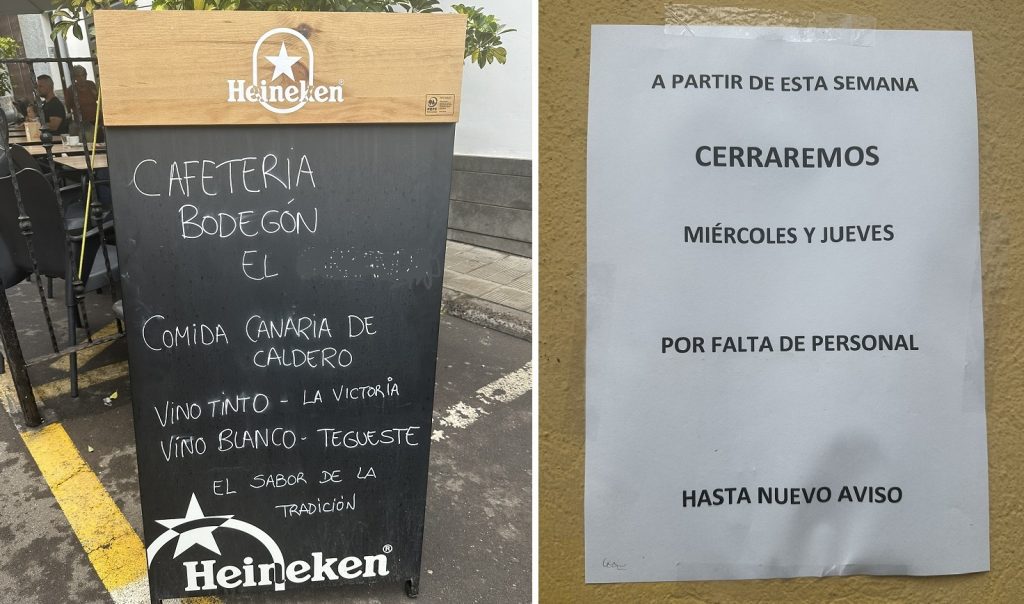 Heineken
CAFETERIA
BODEGÓN
EL
COMIDA CANARIA DE
CALDERO
VINO TINTO - LA VICTORIA
VINO BLANCO - TEGUESTE
EL SABOR DE LA
TRADICIÓN
Heineken
A PARTIR DE ESTA SEMANA
CERRAREMOS
MIÉRCOLES Y JUEVES
POR FALTA DE PERSONAL
HASTA NUEVO AVISO